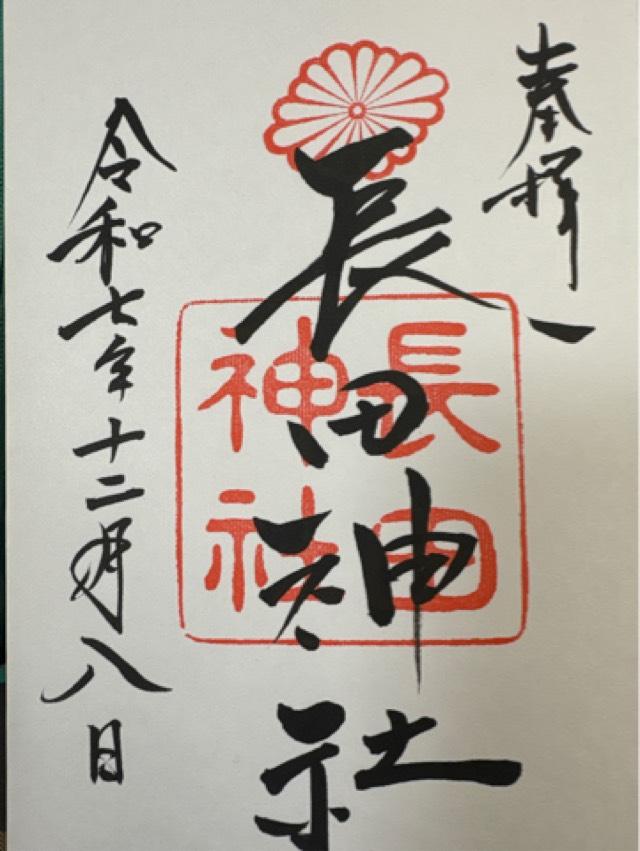 奉拝
長田神社
長田
神社
令和七年十二月八日